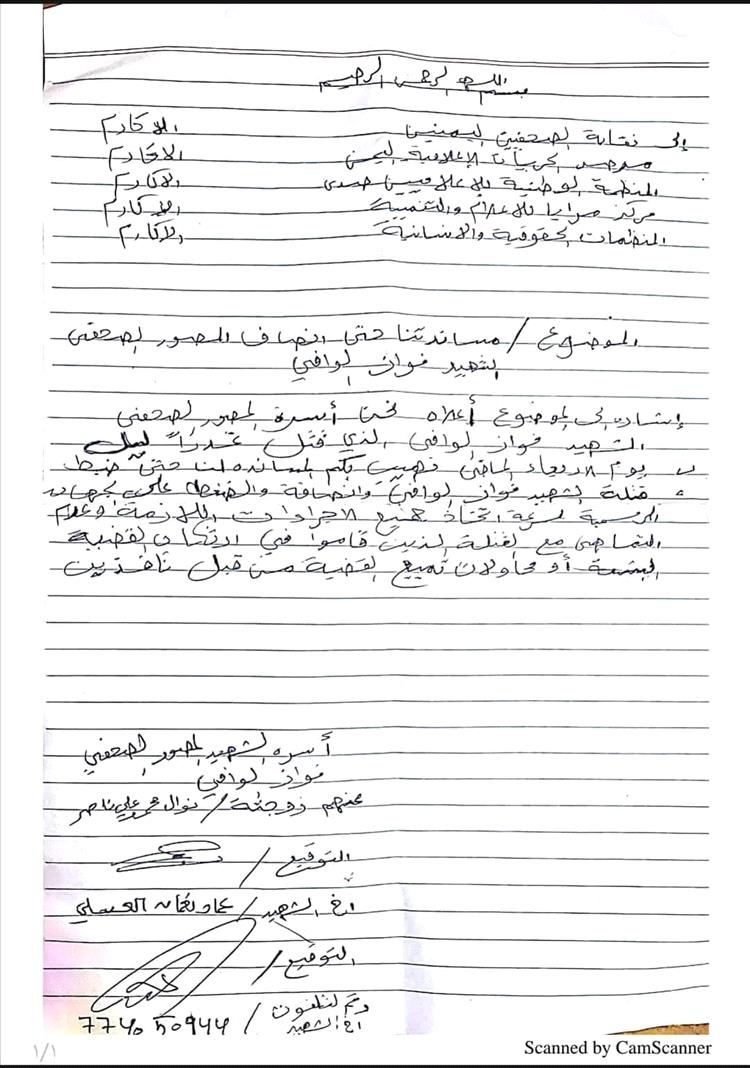 بسم الله الرحمن الرحيم
إلى نقابة الصحفيين اليمنيين الاكارم
مرصد الحريات الإعلامية اليمن الاكارم
المنظمة الوطنية للاعلاميين صدى الاكارم
مركز مرايا للاعلام والتنمية الاكارم
المنظمات الحقوقية والانسانية الاكارم
الموضوع / مساندتنا حتى انصاف المصور الصحفي
الشهيد فواز الوافي
إشاره الى الموضوع أعلاه نحن أسرة المصور الصحفي
الشهيد فواز الوافي الذي قتل غدراً ليل
يوم الاربعاء الماضي نهيب بكم المسانده لنا حتى ضبط
قتلة الشهيد فواز الوافي وانصافة والضغط على الجهات
الرسمية لسرعة اتخاذ جميع الاجراءات اللازمة وعدم
التماهي مع القتلة الذين قاموا في ارتكاب القضية
البشعة أو محاولات تمييع القضية من قبل نافذين
أسره الشهيد المصور الصحفي
فواز الوافي
عنهم زوجته / نوال محمد علي ناصر
التوقيع /
اخ الشهيد / عماد نعمان العسلي
التوقيع /
رقم لتلفون /
اخ الشهيد 774050944
١/١
Scanned by CamScanner